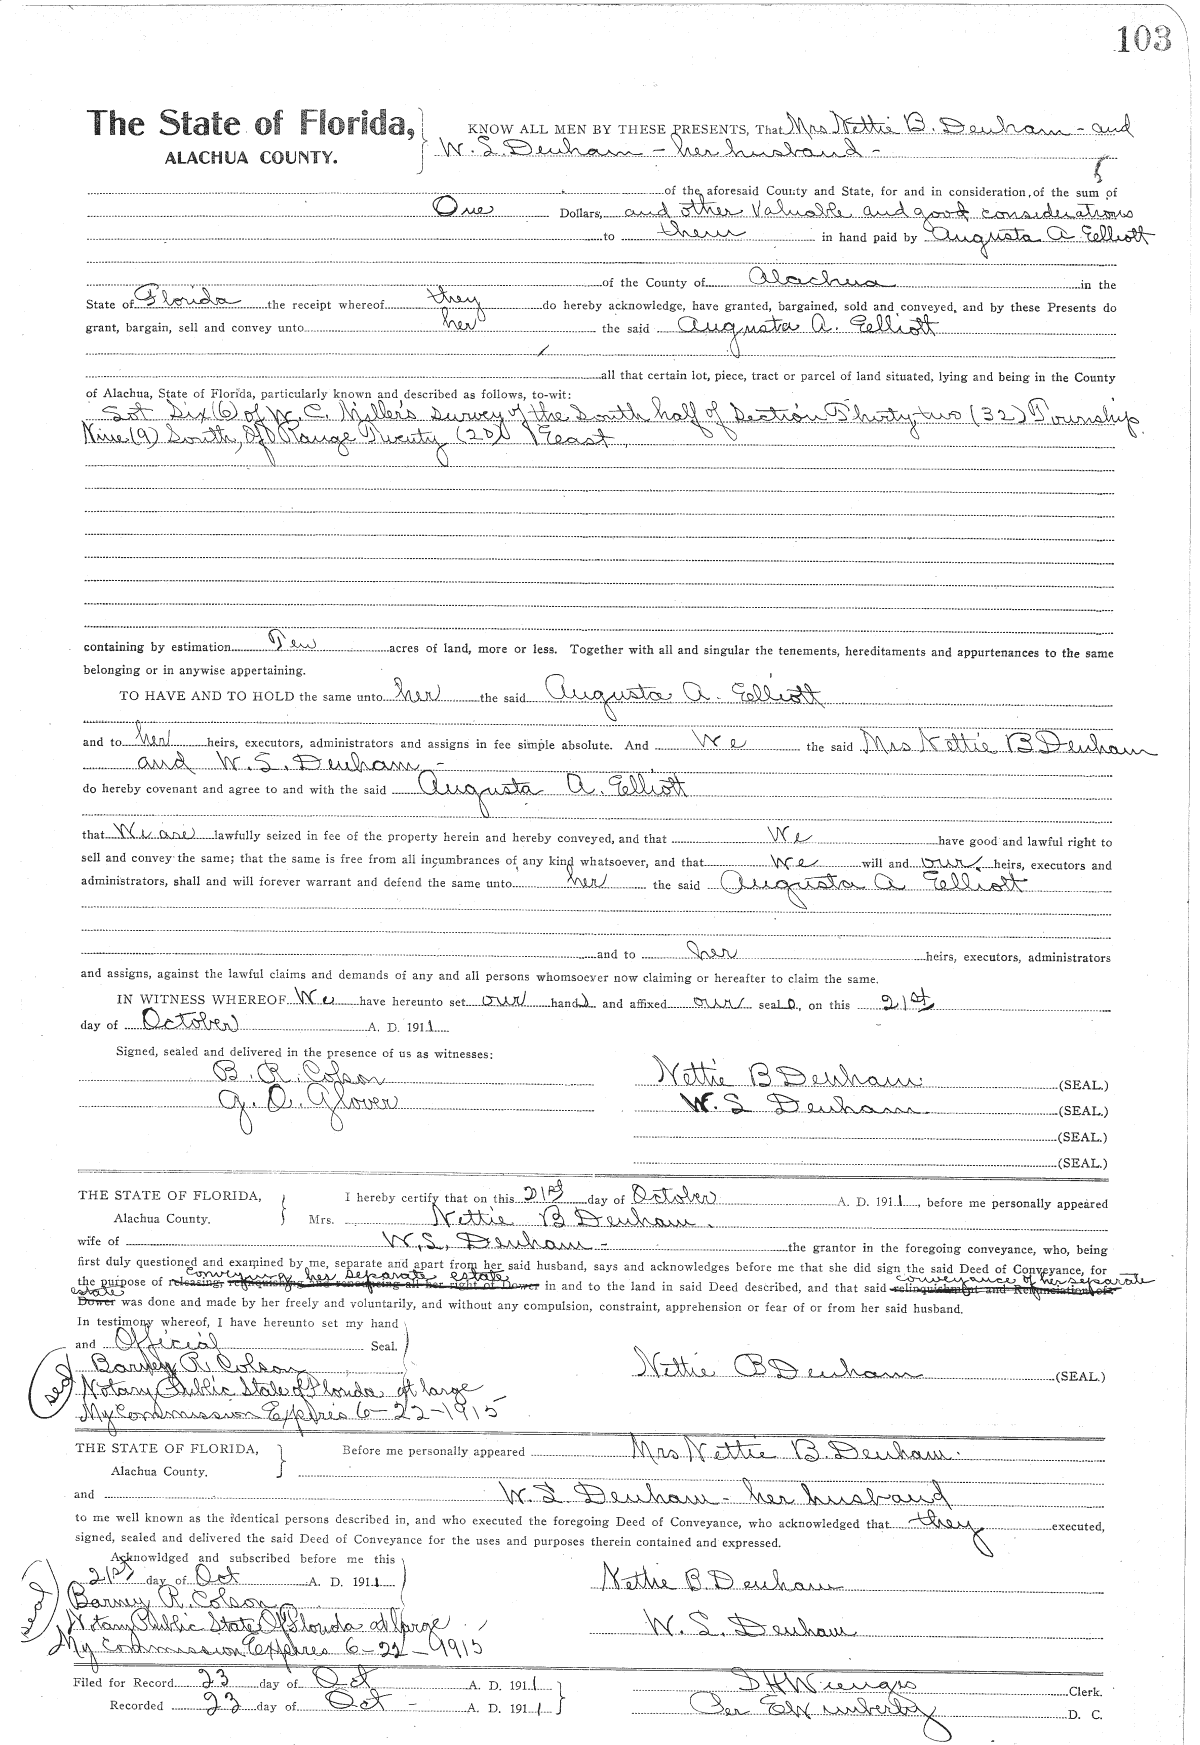 103
The State of Florida, KNOW ALL MEN BY THESE PRESENTS, That Mrs Nettie B. Denham - and
ALACHUA COUNTY. W. S. Denham - her husband -
of the aforesaid County and State, for and in consideration of the sum of
One Dollars, and other valuable and good considerations
to them in hand paid by Augusta A Elliott
of the County of Alachua in the
State of Florida the receipt whereof they do hereby acknowledge, have granted, bargained, sold and conveyed, and by these Presents do
grant, bargain, sell and convey unto her the said Augusta A. Elliott
all that certain lot, piece, tract or parcel of land situated, lying and being in the County
of Alachua, State of Florida, particularly known and described as follows, to-wit:
Lot Six (6) of W. C. Miller's survey of the South half of Section Thirty two (32) Township
Nine (9) South, Of Range Twenty (20) East.
containing by estimation Ten acres of land, more or less. Together with all and singular the tenements, hereditaments and appurtenances to the same
belonging or in anywise appertaining.
TO HAVE AND TO HOLD the same unto her the said Augusta A. Elliott
and to her heirs, executors, administrators and assigns in fee simple absolute. And We the said Mrs Nettie B Denham
and W. S. Denham -
do hereby covenant and agree to and with the said Augusta A. Elliott
that We are lawfully seized in fee of the property herein and hereby conveyed, and that We have good and lawful right to
sell and convey the same; that the same is free from all incumbrances of any kind whatsoever, and that we will and our heirs, executors and
administrators, shall and will forever warrant and defend the same unto her the said Augusta A Elliott
and to her heirs, executors, administrators
and assigns, against the lawful claims and demands of any and all persons whomsoever now claiming or hereafter to claim the same.
IN WITNESS WHEREOF We have hereunto set our hands and affixed our seals, on this 21st
day of October A. D. 1911
Signed, sealed and delivered in the presence of us as witnesses:
B. R. Colson Nettie B Denham. (SEAL.)
G. O. Glover W. S Denham (SEAL.)
(SEAL.)
(SEAL.)
THE STATE OF FLORIDA, I hereby certify that on this 21st day of October A. D. 1911, before me personally appeared
Alachua County. Mrs. Nettie B Denham.
wife of W. S. Denham - the grantor in the foregoing conveyance, who, being
first duly questioned and examined by me, separate and apart from her said husband, says and acknowledges before me that she did sign the said Deed of Conveyance, for
conveying her separate estate conveyance of her separate
the purpose of releasing, relinquishing and renouncing all her right of Dower in and to the land in said Deed described, and that said relinquishment and Renunciation of
estate
Dower was done and made by her freely and voluntarily, and without any compulsion, constraint, apprehension or fear of or from her said husband.
In testimony whereof, I have hereunto set my hand
and Official Seal.
seal Barney R. Colson Nettie B Denham (SEAL.)
Notary Public State of Florida at large
My Commission Expires 6-22-1915
THE STATE OF FLORIDA, Before me personally appeared Mrs Nettie B. Denham.
Alachua County.
and W. S Denham - her husband
to me well known as the identical persons described in, and who executed the foregoing Deed of Conveyance, who acknowledged that they executed,
signed, sealed and delivered the said Deed of Conveyance for the uses and purposes therein contained and expressed.
Acknowldged and subscribed before me this
21st day of Oct A. D. 1911 Nettie B. Denham
seal Barney R. Colson
Notary Public State Of Florida at large W. S. Denham
My Commission Expires 6-22-1915
Filed for Record 23 day of Oct A. D. 1911 Clerk.
Recorded 23 day of Oct - A. D. 1911 Per D. C.